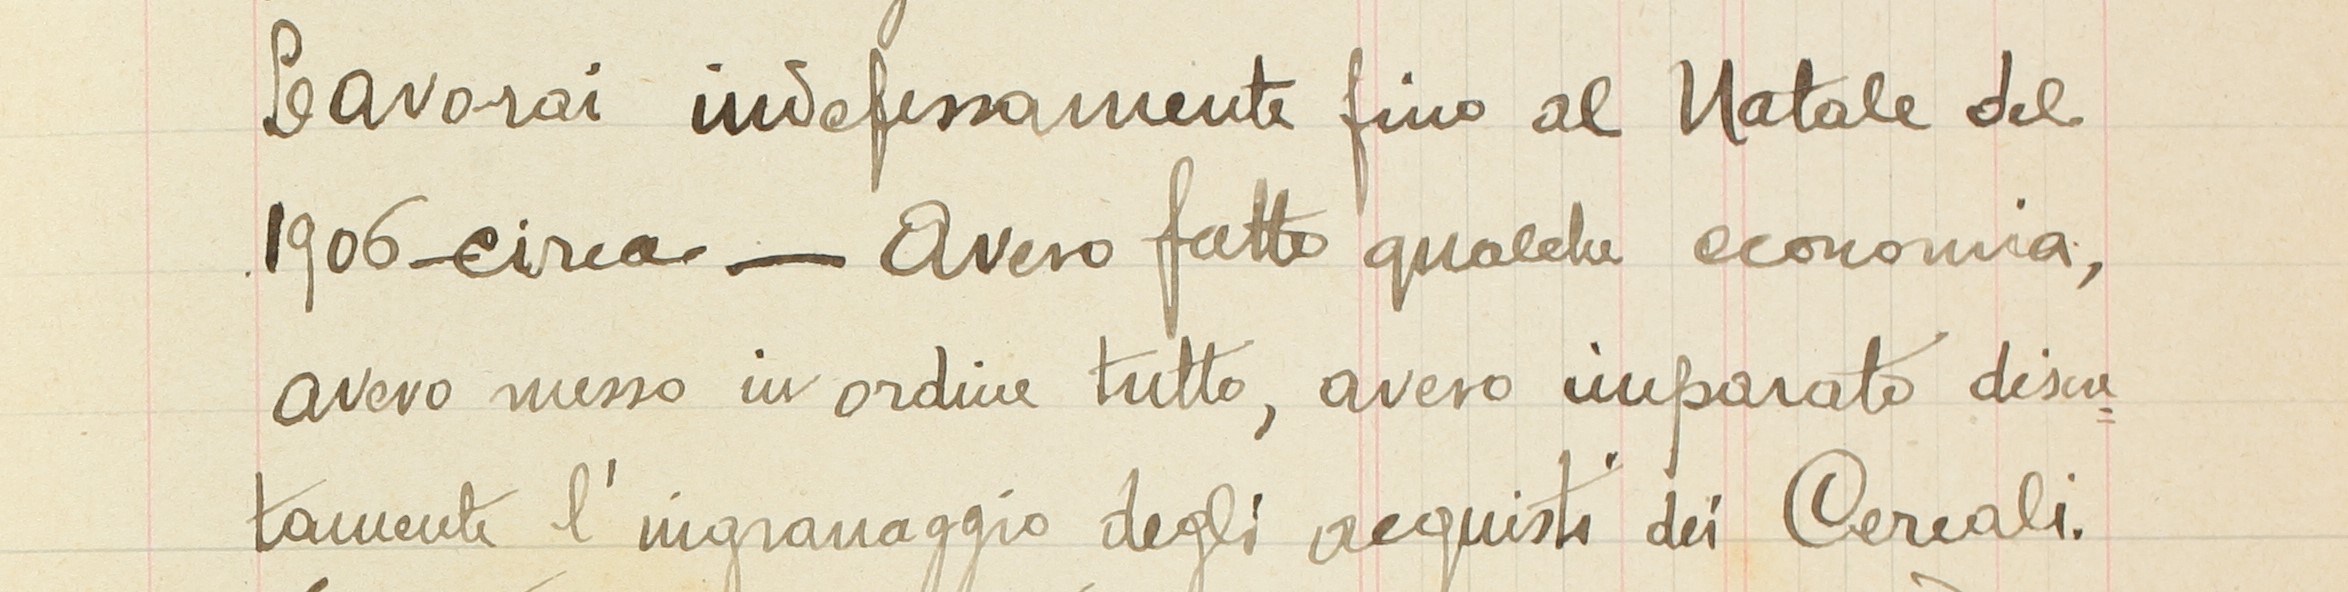 Lavorai indefessamente fino al Natale del
1906 circa — Avevo fatto qualche economia,
avevo messo in ordine tutto, avevo imparato discre=
tamente l'ingranaggio degli acquisti dei Cereali.